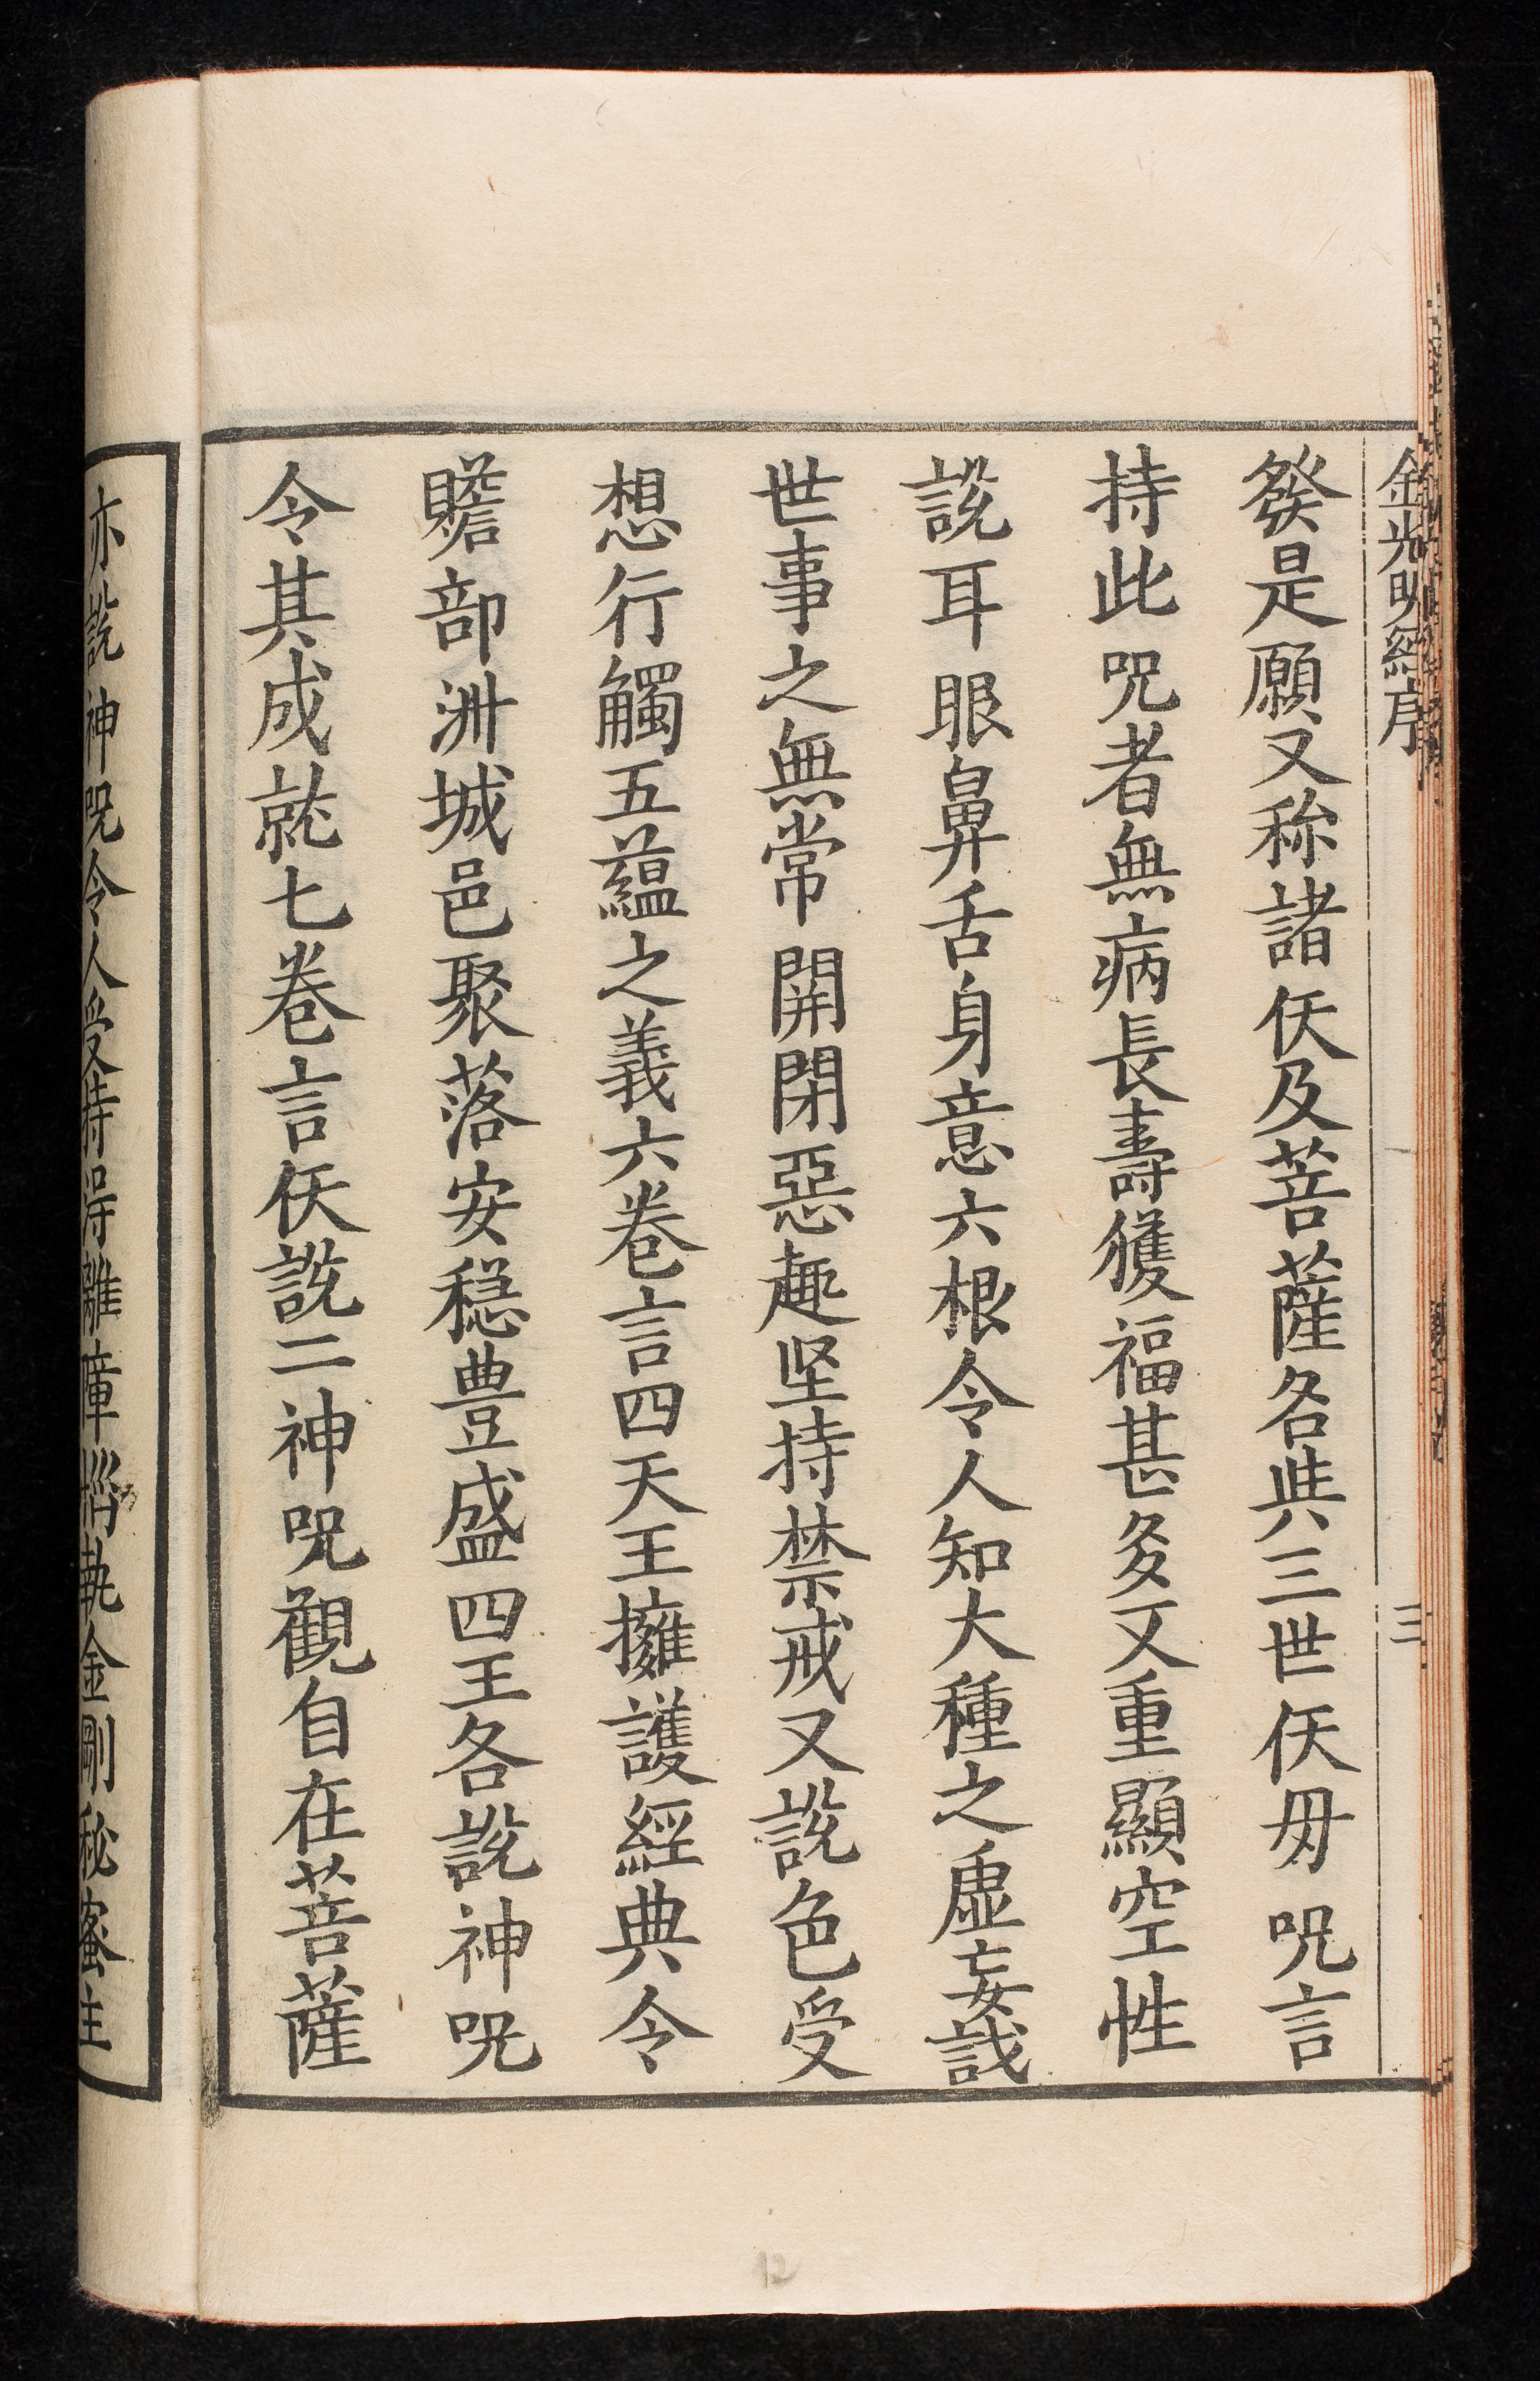 金光明經序
三
發是願又称諸仸及菩薩各共三世仸毋咒言
持此咒者無病長壽獲福甚多又重顯空性
說耳眼鼻舌身意六根令人知大種之虛妄識
世事之無常開閉惡趣坚持禁戒又說色受
想行觸五蘊之義六卷言四天王擁護經典令
贍部洲城邑聚落安穏豊盛四王各說神咒
令其成就七卷言仸說二神咒觀自在菩薩
亦說神咒令人受持得離障惱執金剛秘蜜主
12